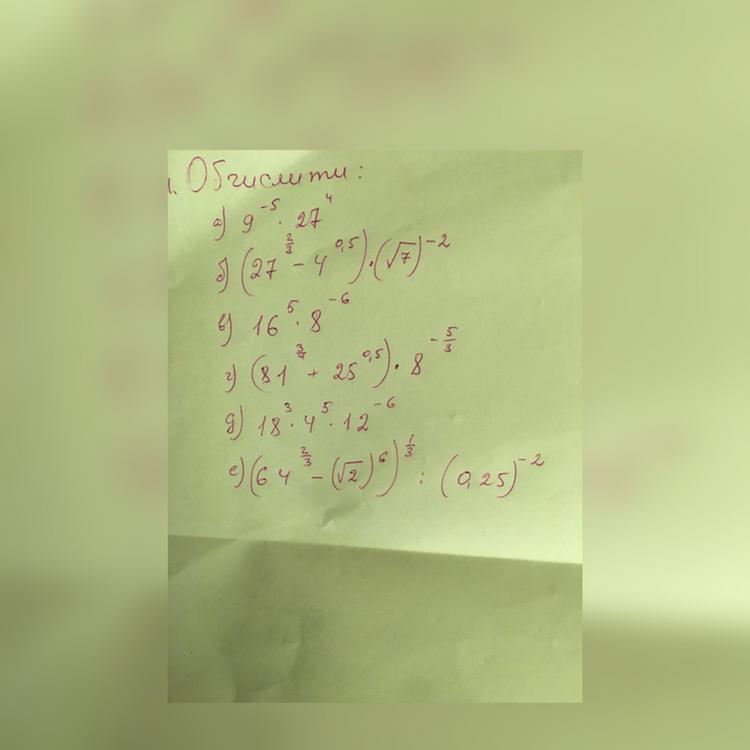 1. Обчислити:
а) 9⁻⁵ · 27⁴
б) (27^(2/3) − 4^(0,5)) · (√7)⁻²
в) 16⁵ · 8⁻⁶
г) (81^(3/4) + 25^(0,5)) · 8^(−5/3)
д) 18³ · 4⁵ · 12⁻⁶
е) (64^(2/3) − (√2)⁶)^(1/3) : (0,25)⁻²